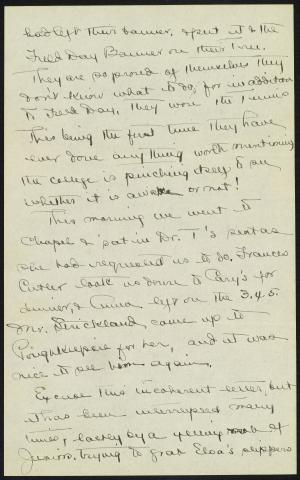 had left their banner, & put it & the
Field Day Banner on their tree.
They are so proud of themselves they
don't know what to do, for in addition
to Field Day, they won the Tennis
This being the first time they have
ever done anything worth mentioning
the college is pinching itself to see
whether it is awake or not!
This morning we went to
Chapel & sat in Dr. T's seat as
she had requested us to do. Frances
Cutler took us down to Cary's for
dinner, & Anna left on the 3.45.
Mr. Strickland came up to
Poughkeepsie for her, and it was
nice to see him again.
Excuse this incoherent letter, but
it has been interrupted many
times, lastly by a yelling mob of
Juniors trying to grab Elsa's slippers